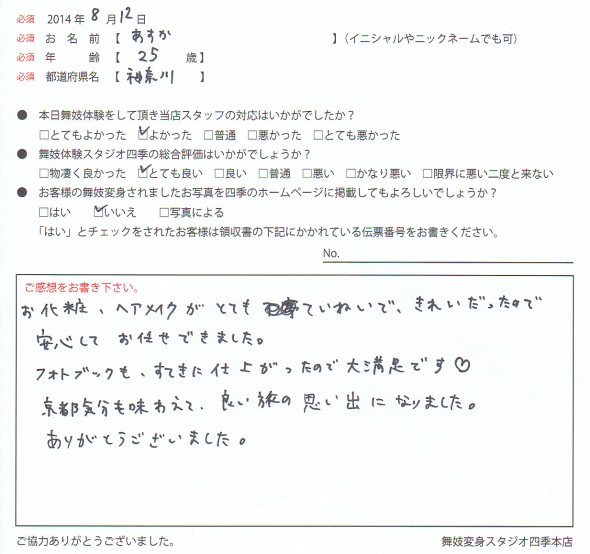 必須 2014年 8 月 12 日
必須 お 名 前 【 あすか 】(イニシャルやニックネームでも可)
必須 年 齢 【 25 歳】
必須 都道府県名 【 神奈川 】
● 本日舞妓体験をして頂き当店スタッフの対応はいかがでしたか?
□とてもよかった ☑よかった □普通 □悪かった □とても悪かった
● 舞妓体験スタジオ四季の総合評価はいかがでしょうか?
□物凄く良かった ☑とても良い □良い □普通 □悪い □かなり悪い □限界に悪い二度と来ない
● お客様の舞妓変身されましたお写真を四季のホームページに掲載してもよろしいでしょうか?
□はい ☑いいえ □写真による
「はい」とチェックをされたお客様は領収書の下記にかかれている伝票番号をお書きください。
No.
ご感想をお書き下さい。
お化粧、ヘアメイクがとても ていねいで、きれいだったので
安心して お任せできました。
フォトブックも、すてきに仕上がったので大満足です♡
京都気分も味わえて、良い旅の思い出になりました。
ありがとうございました。
ご協力ありがとうございました。
舞妓変身スタジオ四季本店